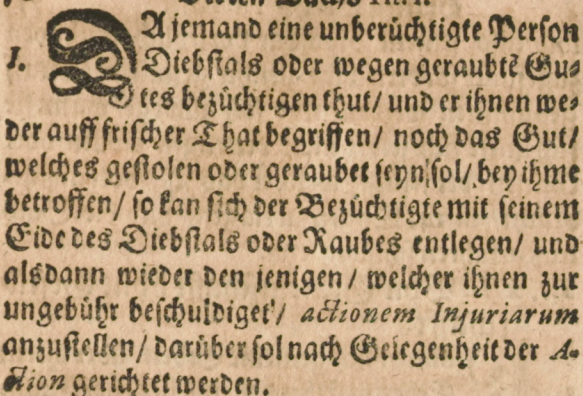 DA jemand eine unberüchtigte Person
I. Diebstals oder wegen geraubtē Gu⸗
tes bezüchtigen thut/ und er ihnen we⸗
der auff frischer That begriffen/ noch das Gut/
welches gestolen oder geraubet seyn sol/ bey ihme
betroffen/ so kan sich der Bezüchtigte mit seinem
Eide des Diebstals oder Raubes entlegen/ und
alsdann wieder den jenigen/ welcher ihnen zur
ungebühr beschuldiget/ actionem Injuriarum
anzustellen/ darüber sol nach Gelegenheit der A⸗
ction gerichtet werden.